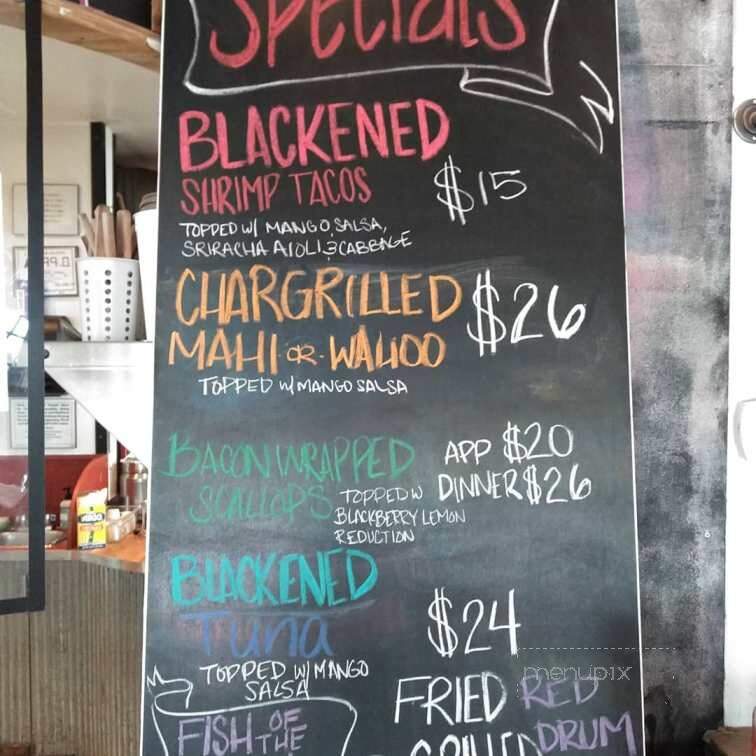 Specials
BLACKENED
SHRIMP TACOS $15
TOPPED W/ MANGO SALSA,
SRIRACHA AIOLI & CABBAGE
CHARGRILLED $26
MAHI OR WAHOO
TOPPED W/ MANGO SALSA
BACON WRAPPED APP $20
SCALLOPS TOPPED W DINNER $26
BLACKBERRY LEMON
REDUCTION
BLACKENED
Tuna $24
TOPPED W/ MANGO
SALSA
FRIED RED
FISH OF THE GRILLED DRUM
menupix